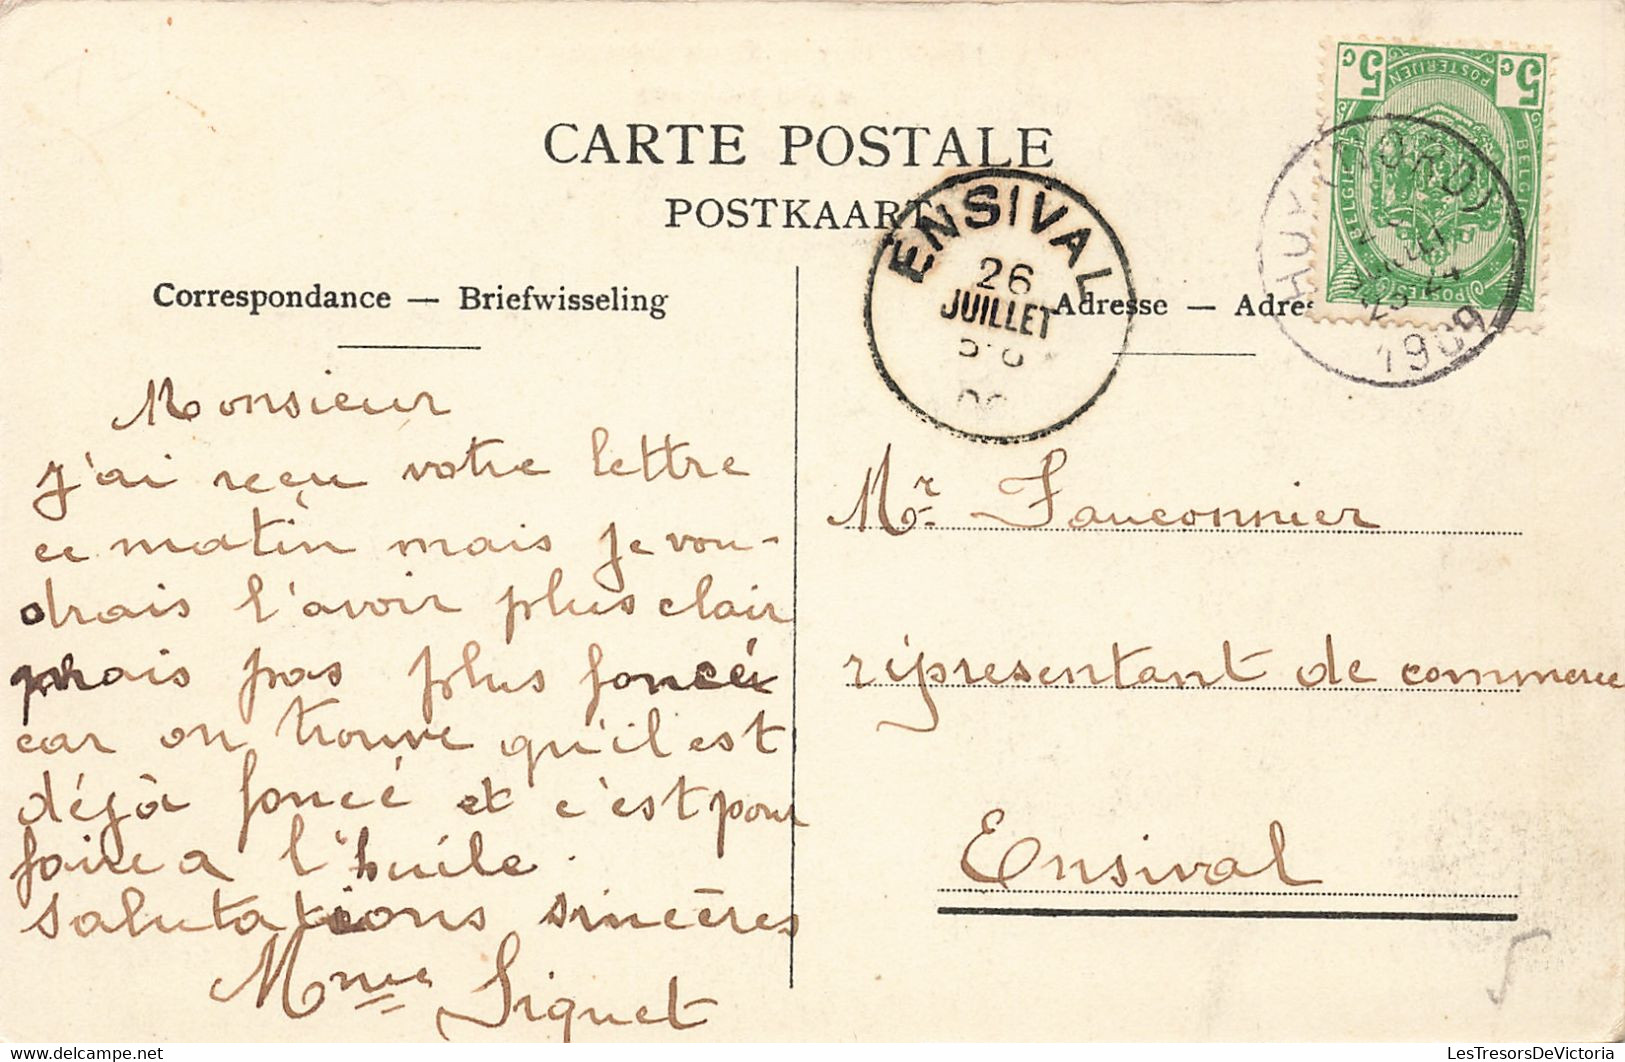 CARTE POSTALE
POSTKAART
Correspondance — Briefwisseling
Adresse — Adres
5c
5c
POSTERIJEN
BELGIE
BELG
POSTES
HUY (NORD)
1909
ENSIVAL
26
JUILLET
Monsieur
j'ai reçu votre lettre
ce matin mais je vou-
drais l'avoir plus clair
mais pas plus foncé
car on trouve qu'il est
déjà foncé et c'est pour
faire a l'huile.
Salutations sincères
Mme Siquet
Mr. Fauconnier
représentant de commerce
Ensival
LesTresorsDeVictoria - delcampe.net